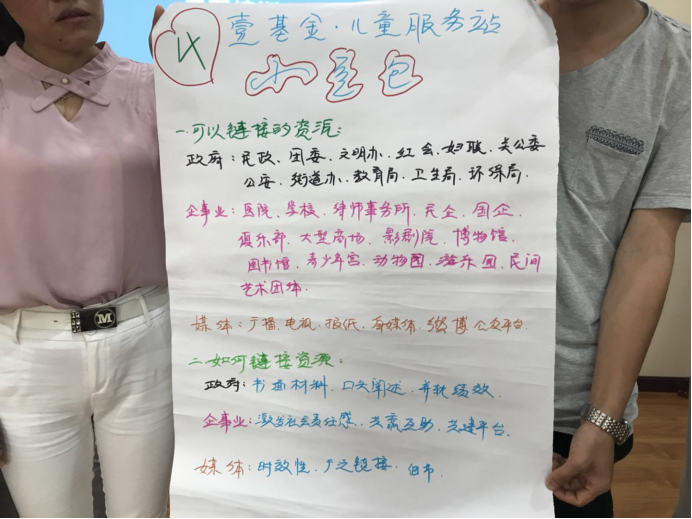 4
壹基金·儿童服务站
小豆包
一.可以链接的资源:
政府:民政、团委、文明办、红会、妇联、关公委
公安、街道办、教育局、卫生局、环保局.
企事业:医院、学校、律师事务所、民企、国企
俱乐部、大型商场、影剧院、博物馆
图书馆、青少年宫、动物园、游乐园、民间
艺术团体.
媒体:广播、电视、报纸、新媒体、微博公众平台.
二.如何链接资源:
政府:书面材料、口头阐述、并轨绩效
企事业:激发社会责任感、共赢互助、共建平台.
媒体:时效性、广泛链接、
M